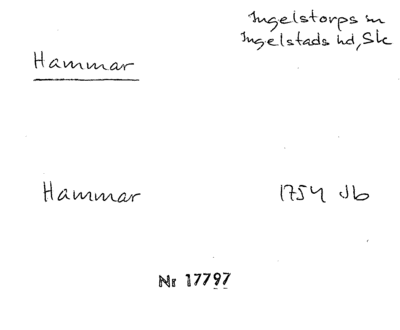 Ingelstorps sn
Ingelstads hd, Sk
Hammar
Hammar 1754 Jb
Nr 17797